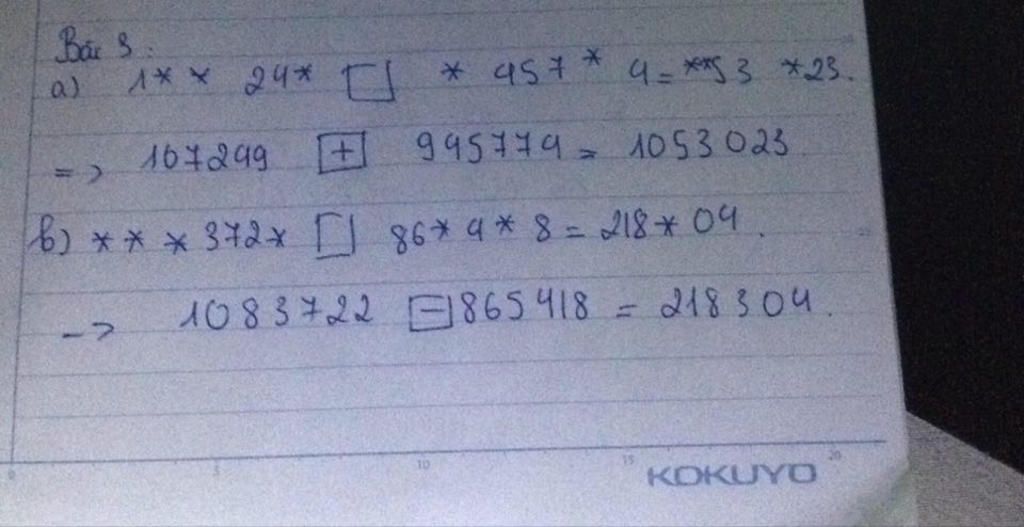 Bài 3:
a) 1** 24* □ * 457*4 = **53 *23.
=> 107249 [+] 945774 = 1053023
b) ***372* □ 86*4*8 = 218*04.
-> 1083722 [-] 865418 = 218304.
0 5 10 15 20
KOKUYO